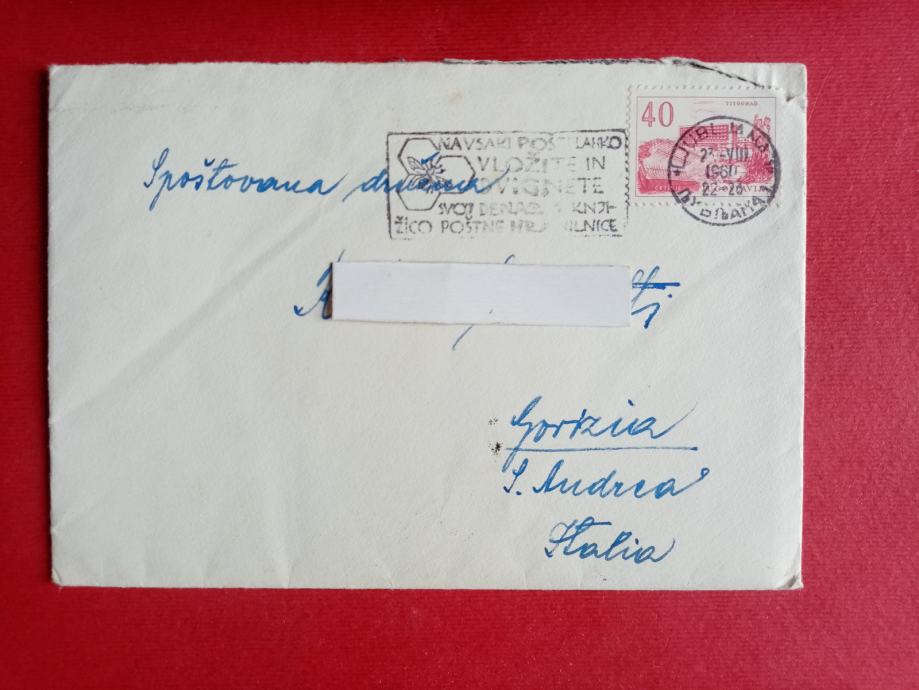 40
TITOGRAD
LJUBLJANA
23.-VIII
1960
22-23
NA VSAKI POŠTI LAHKO
VLOŽITE IN
DVIGNETE
SVOJ DENAR S KNJI-
ŽICO POŠTNE HRANILNICE
Spoštovana družina
Gorizia
S. Andrea
Italia